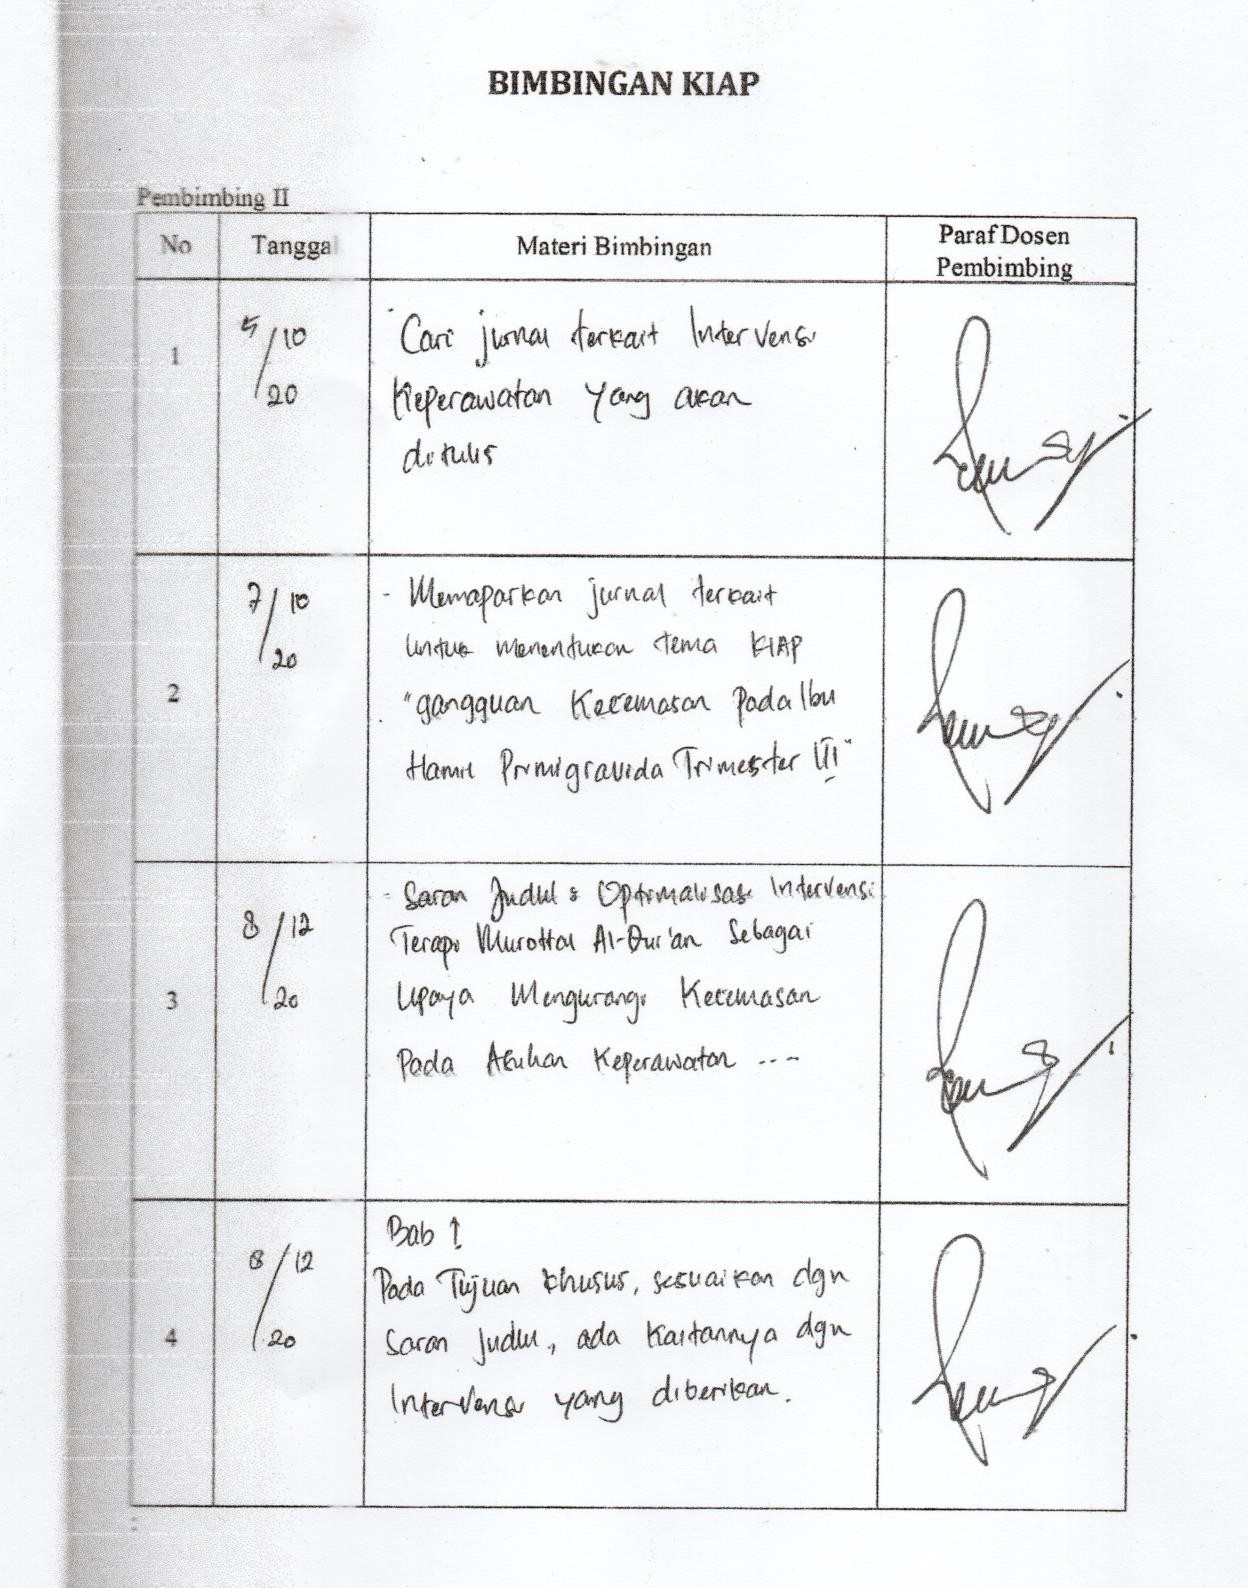 BIMBINGAN KIAP
Pembimbing II
No Tanggal Materi Bimbingan Paraf Dosen
Pembimbing
1 5/10
20
- Cari jurnal terkait Intervensi
Keperawatan yang akan
ditulis
2 7/10
20
- Memaparkan jurnal terkait
untuk menentukan tema KIAP
"gangguan Kecemasan Pada Ibu
Hamil Primigravida Trimester III"
3 8/12
20
- Saran Judul : Optimalisasi Intervensi
Terapi Murottal Al-Qur'an Sebagai
Upaya Mengurangi Kecemasan
Pada Asuhan Keperawatan ....
4 8/12
20
Bab 1
Pada Tujuan khusus, sesuaikan dgn
Saran Judul, ada Kaitannya dgn
Intervensi yang diberikan.